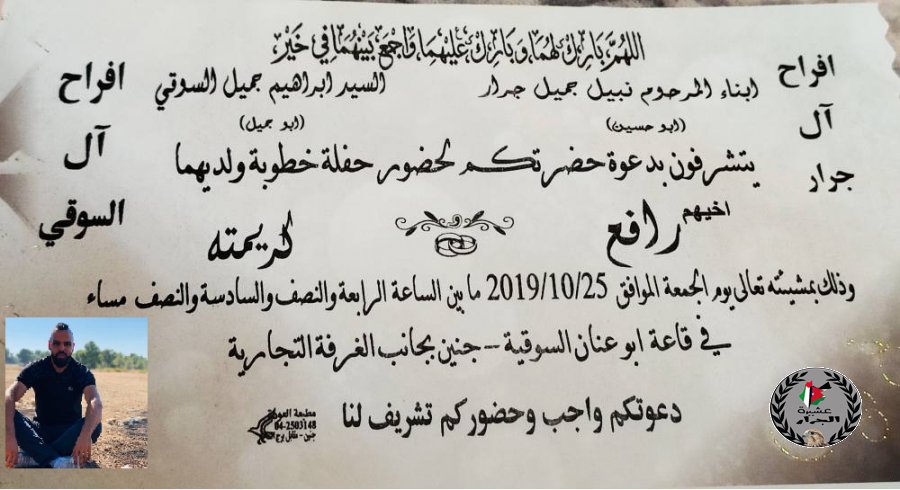 اللهُمَّ بَارِكْ لَهُمَا وَبَارِكْ عَلَيْهِمَا وَاجْمَعْ بَيْنَهُمَا فِي خَيْرْ
افراح
آل
جرار
افراح
آل
السوقي
ابناء المرحوم نبيل جميل جرار
(ابو حسين)
السيد ابراهيم جميل السوقي
(ابو جميل)
يتشرفون بدعوة حضرتكم لحضور حفلة خطوبة ولديهما
اخيهم رافع
كريمته
وذلك بمشيئته تعالى يوم الجمعة الموافق 2019/10/25 ما بين الساعة الرابعة والنصف والسادسة والنصف مساء
في قاعة ابو عنان السوقية - جنين بجانب الغرفة التجارية
دعوتكم واجب وحضوركم تشريف لنا
مطبعة
04-2503148
جنين - مقابل برج
عشيرة
الجرار